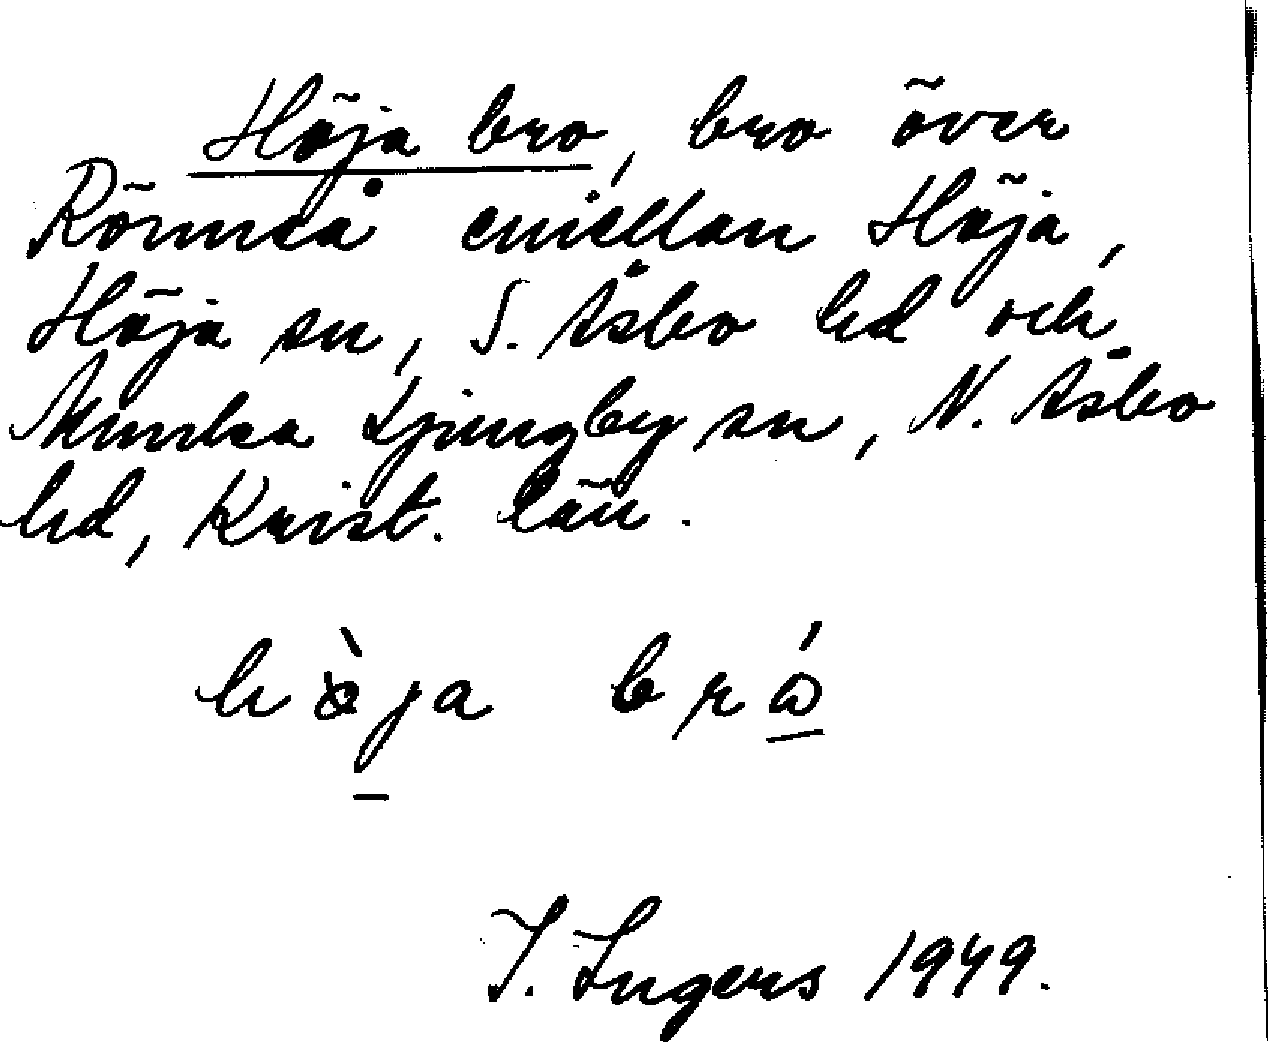 Höja bro, bro över
Rönneå mellan Höja,
Höja sn, S. Åsbo hd och
Munka Ljungby sn, N. Åsbo
hd, Krist. län.
I. Ingers 1949.